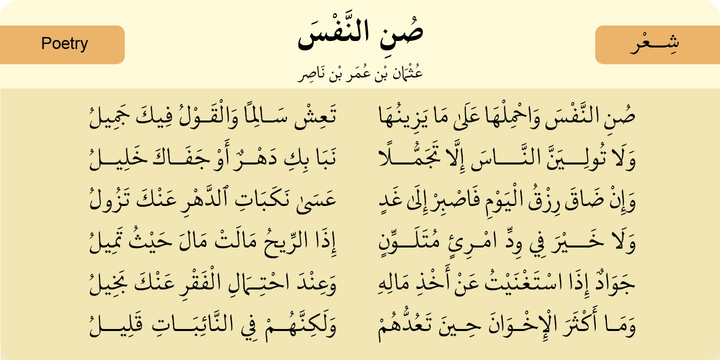 Poetry
صُنِ النَّفْسَ
شِــعْر
عُثْمَان بْن عُمَر بْن نَاصِر
صُنِ النَّفْسَ وَاحْمِلْهَا عَلَىٰ مَا يَزِينُهَا تَعِشْ سَــالِمًا وَالْقَــوْلُ فِيكَ جَمِيلُ
وَلَا تُولِــيَنَّ النَّــــاسَ إِلَّا تَجَمُّـــلًا نَبَا بِكِ دَهْــرٌ أَوْ جَفَــاكَ خَلِيــلُ
وَإِنْ ضَاقَ رِزْقُ الْيَوْمِ فَاصْبِرْ إِلَىٰ غَدٍ عَسَىٰ نَكَبَاتِ ٱلدَّهْرِ عَنْكَ تَزُولُ
وَلَا خَــــيْرَ فِي وِدِّ امْــرِئٍ مُتَلَــوِّنٍ إِذَا الرِّيحُ مَالَتْ مَالَ حَيْثُ تَمِيلُ
جَوَادٌ إِذَا اسْتَغْنَيْتُ عَنْ أَخْذِ مَالِهِ وَعِنْدَ احْتِــمَالِ الْفَقْرِ عَنْكَ بَخِيلُ
وَمَــا أَكْثَرَ الْإِخْــوَانَ حِــينَ تَعُدُّهُــمْ وَلَكِنَّهُــمْ فِي النَّائِبَــاتِ قَلِيــلُ